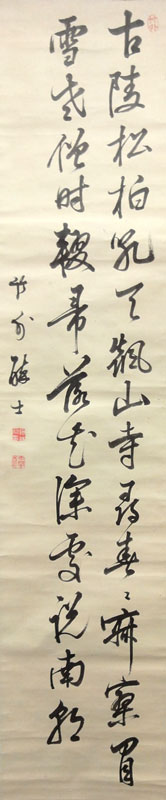 古陵松柏吼天飆山寺尋春〻寂寥眉
雪老僧時輟帚落花深處説南朝
竹外醉士